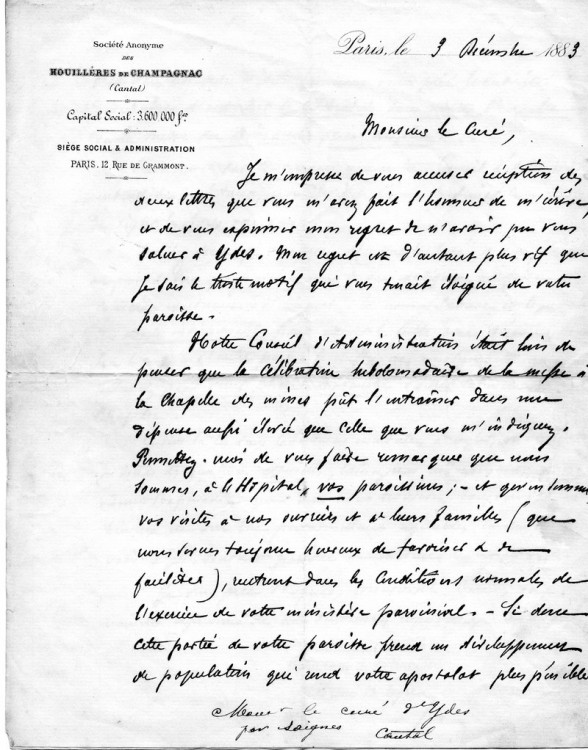 Société Anonyme
DES
HOUILLÈRES DE CHAMPAGNAC
(Cantal)
Capital Social : 3.600.000 frs
SIÈGE SOCIAL & ADMINISTRATION
PARIS. 12 RUE DE GRAMMONT.
Paris, le 3 Décembre 1883
Monsieur le Curé,
Je m'empresse de vous accuser réception des
deux lettres que vous m'avez fait l'honneur de m'écrire
et de vous exprimer mon regret de n'avoir pu vous
saluer à Ydes. Mon regret est d'autant plus vif que
je sais le triste motif qui vous tenait éloigné de votre
paroisse.
Notre Conseil d'Administration était loin de
penser que la célébration hebdomadaire de la messe à
la Chapelle des mines pût l'entraîner dans une
dépense aussi élevée que celle que vous m'indiquez.
Permettez-moi de vous faire remarquer que nous
sommes, à l'Hôpital, vos paroissiens ; - et qu'en somme
vos visites à nos ouvriers et à leurs familles (que
nous serons toujours heureux de favoriser & de
faciliter), rentrent dans les conditions normales de
l'exercice de votre ministère paroissial. - Si donc
cette portée de votre paroisse prend un développement
de population qui rend votre apostolat plus pénible
Monsr le curé d'Ydes
par Saignes
Cantal